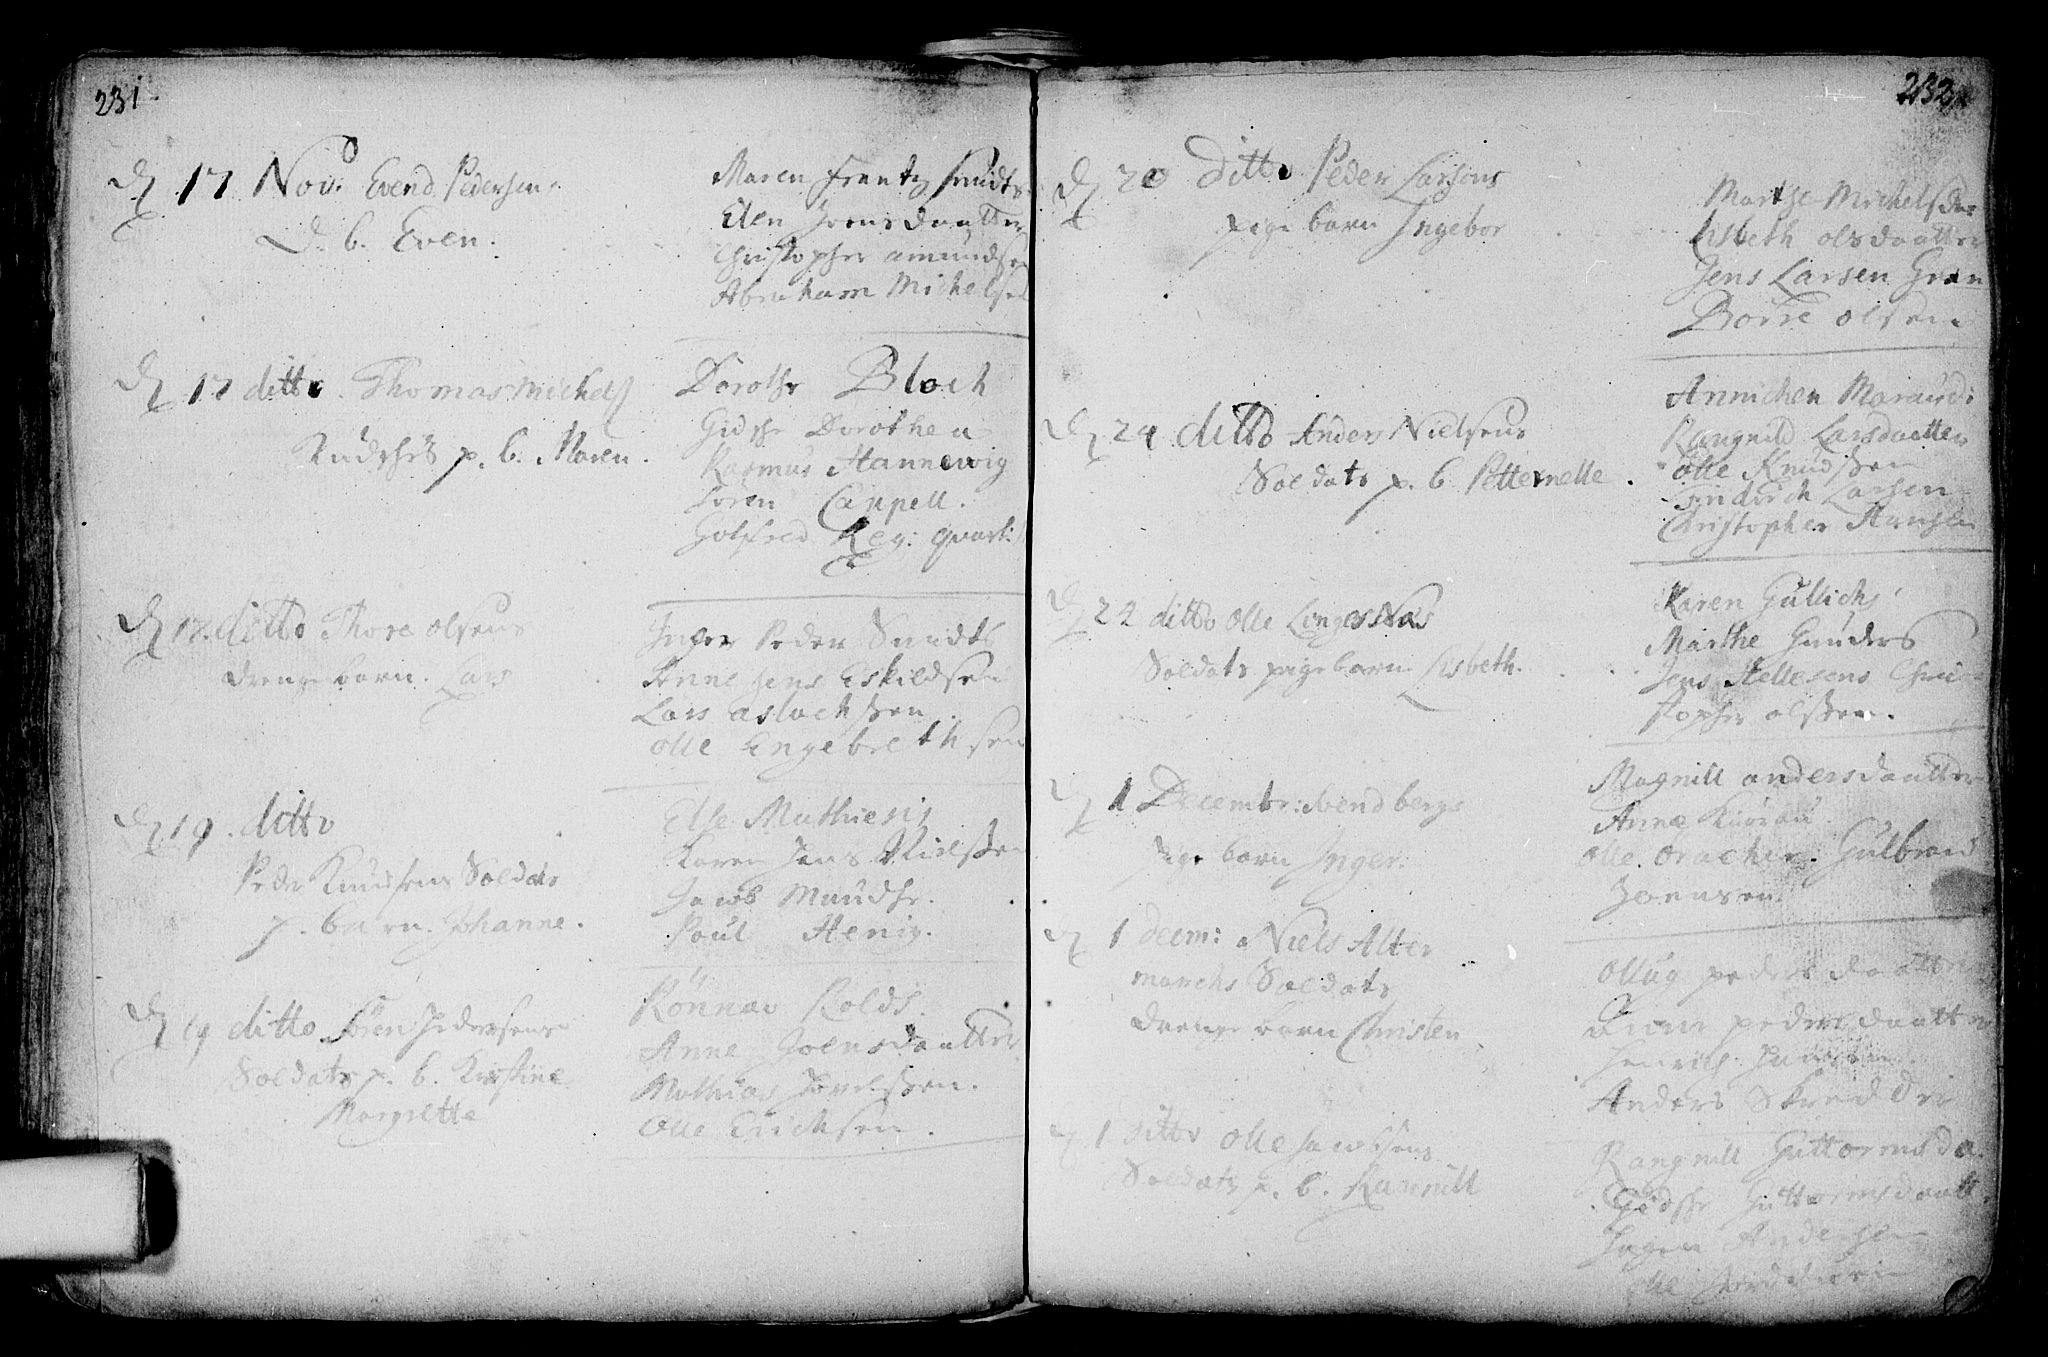 231
D 17 Nov: Evend Pedersens
D. b. Even.
Maren Frantz Smidts
Elen Joensdaatter
Christopher amundsen
Abraham Michelsen
D 17 ditto. Thomas Michels
p. b. Maren.
Dorothe Bloch
Gidsche Dorothea
Rasmus Hannewig
Sören Cappell.
Golfred Reg: quart:
D 17. ditto Thore olsens
drenge barn. Lars
Inger Peder Smidts
Anne Jens Eskildsen
Lars aslachssen
Olle Engebrethsen
D 19. ditto
Peder Knudsens Soldats
p. barn. Johanne.
Else Mathiesis
Karen Jens Nielssen
Jacob
Poul Henig.
D 19 ditto Sören Pedersens
Soldats p. b. Kirstine
Margrette
Rönnav Rolds.
Anne Joensdaatter
Mathias
Olle Erichsen.
232
D 20 ditto Peder Larsens
pige barn Ingebor
Marthe Michelsdaa
Lisbeth olsdaatter
Jens Larsen Gran
Borre olsen
D 24 ditto Anders Nielsens
Soldats p. b. Petternelle.
Annichen
Rangnild Larsdaatter
Olle Knudssen
Larsen
Christopher Hansen
D 24 ditto Olle
Soldats pigebarn Lisbeth.
Karen Gullichs
Marthe Gunders
Jens Chri-
stopher olssen.
D 1 Decembr: Svend bergs
pige barn Inger.
Magnill andersdaatter
Anne
Olle. Gulbrand
Joensen.
D 1 decm: Niels Alter
marchs Soldats
drenge barn Christen
Ollug pedersdaatter
pedersdaatter
Henrich
Anders Skredder
D 1 ditto Olle Jacobsens
Soldats p. b. Rannill
Rangnill Guttormsda.
Gidsche Guttormsdaatt.
Andersen
Olle